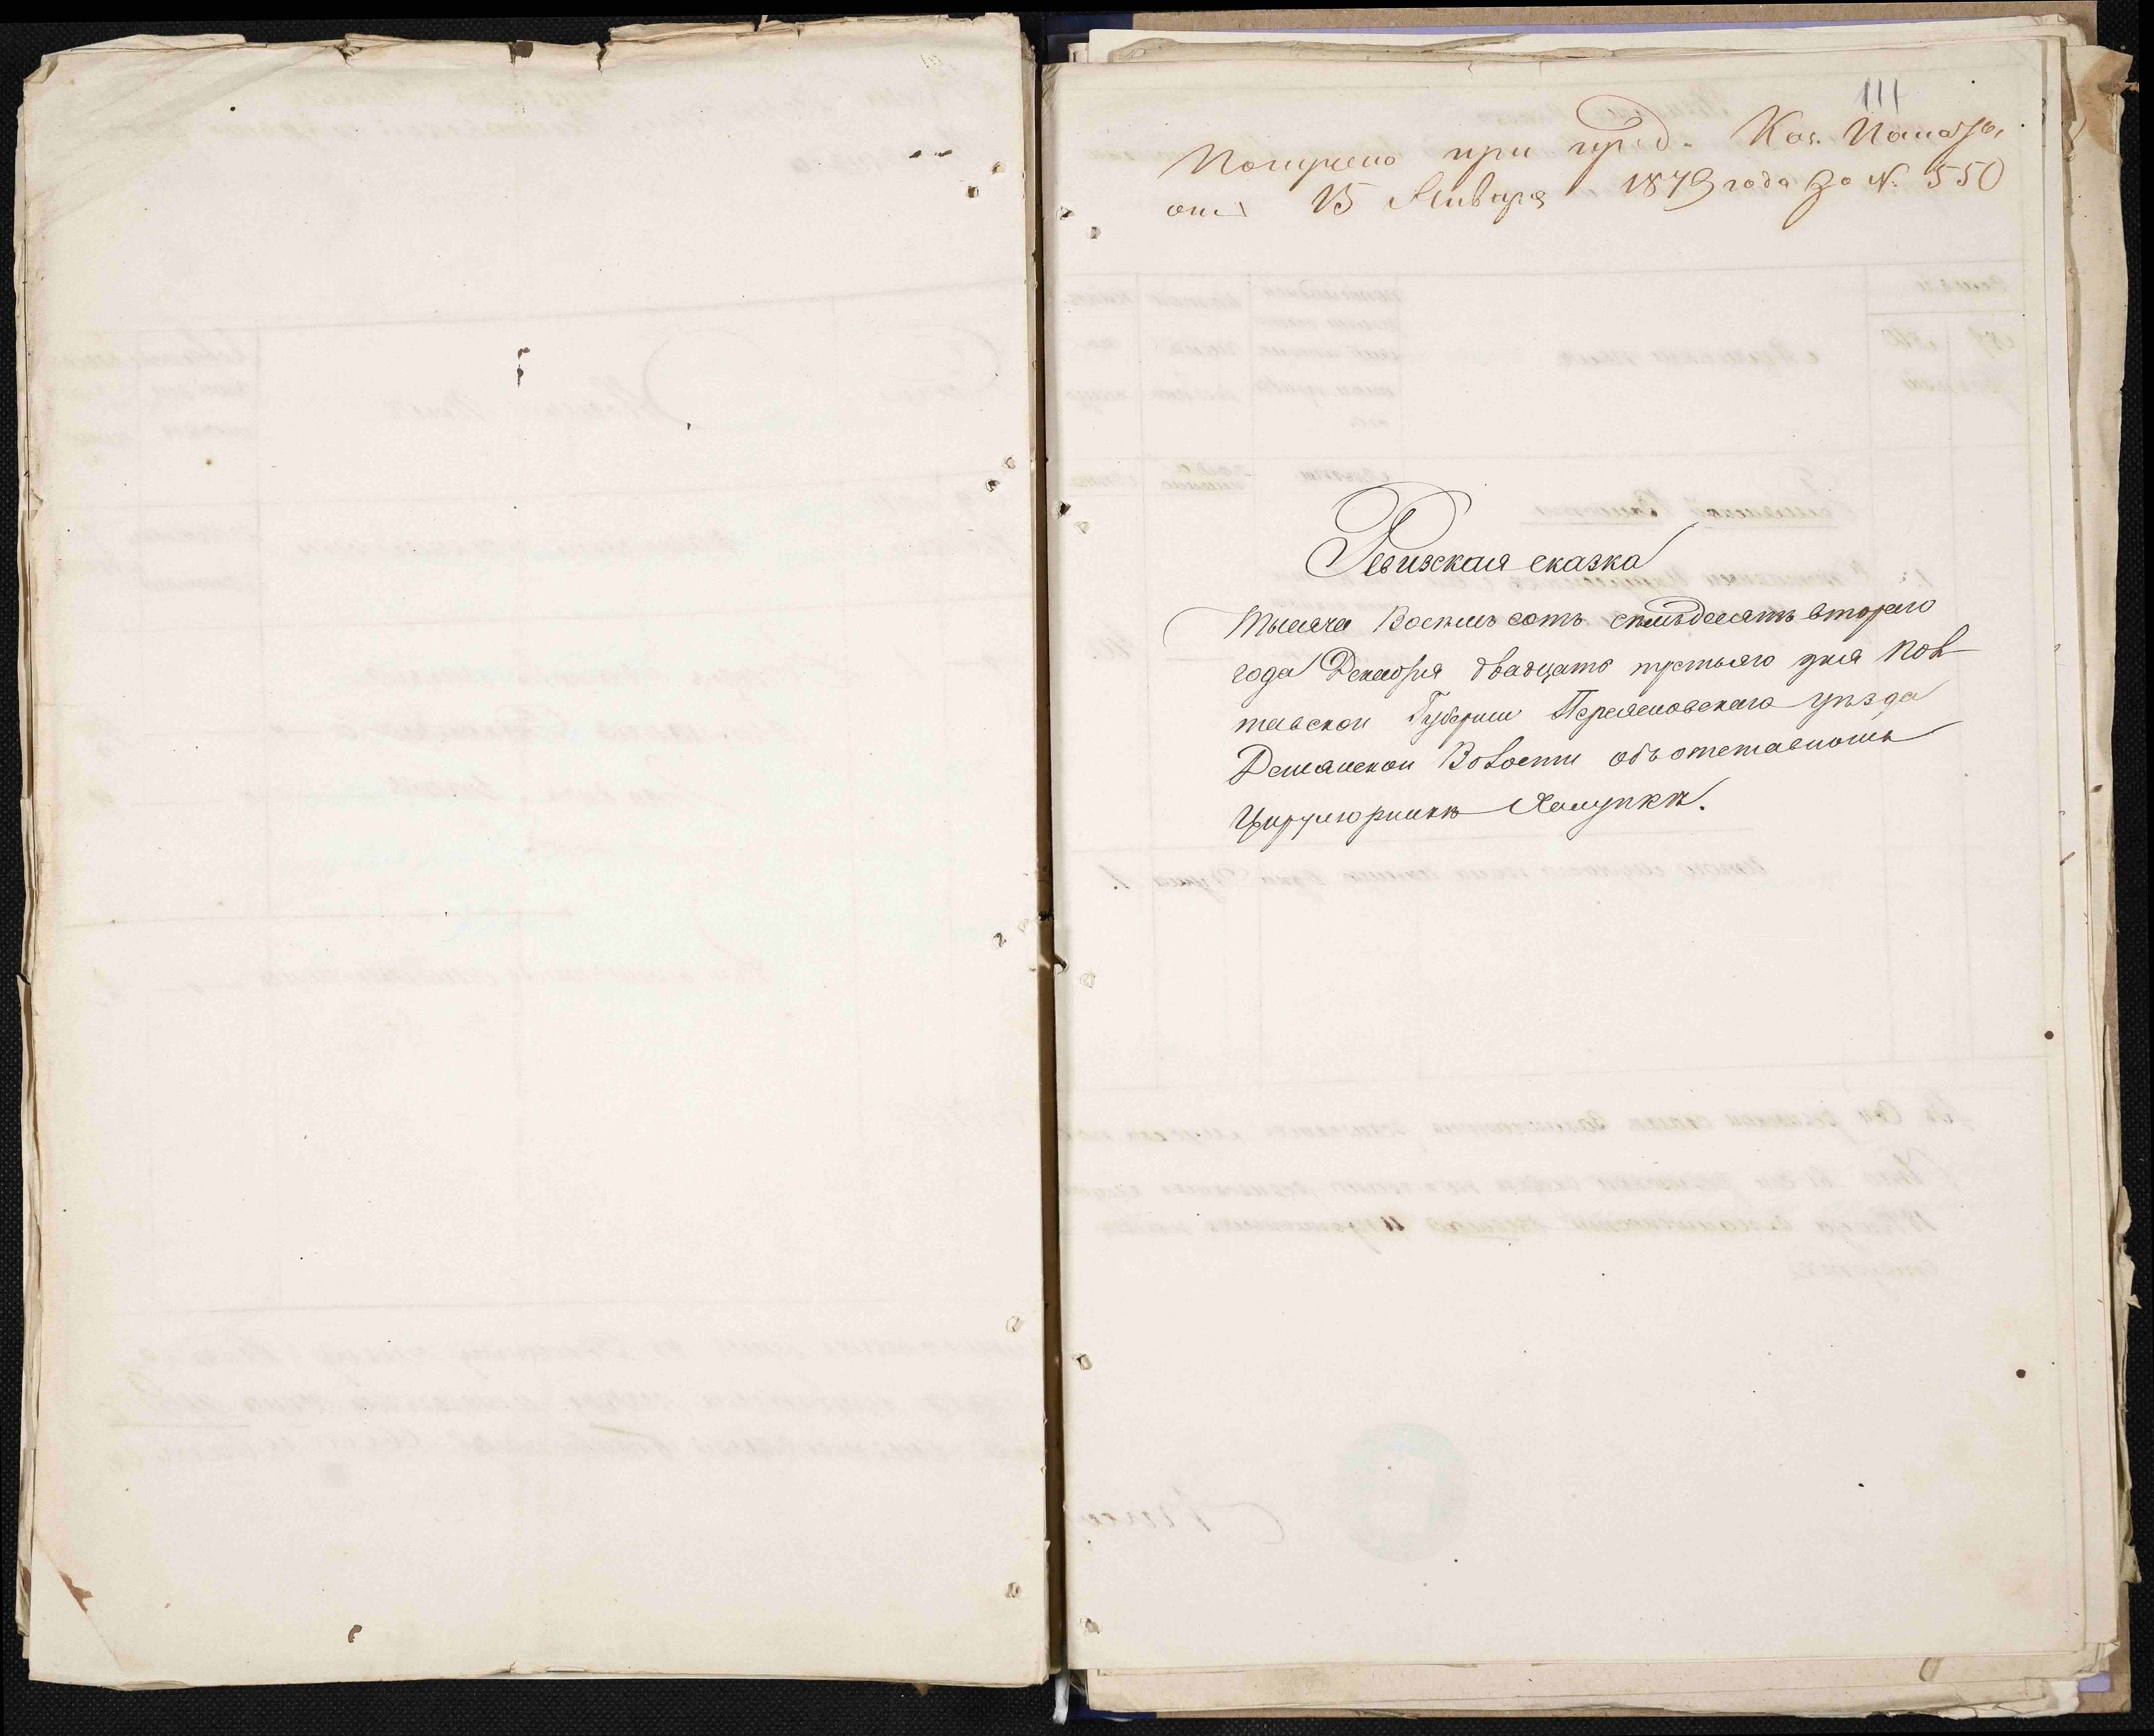 111
Получено при пред. Каз. Палаты
отъ 15 Января 1879 года за №. 550
Ревизская сказка
Тысяча Восемь сотъ семьдесятъ втораго
года Декабря двадцать третьяго дня Пол-
тавской Губернии Переяславскаго уѣзда
Демянской Волости объ отставномъ
Цирулюрникѣ